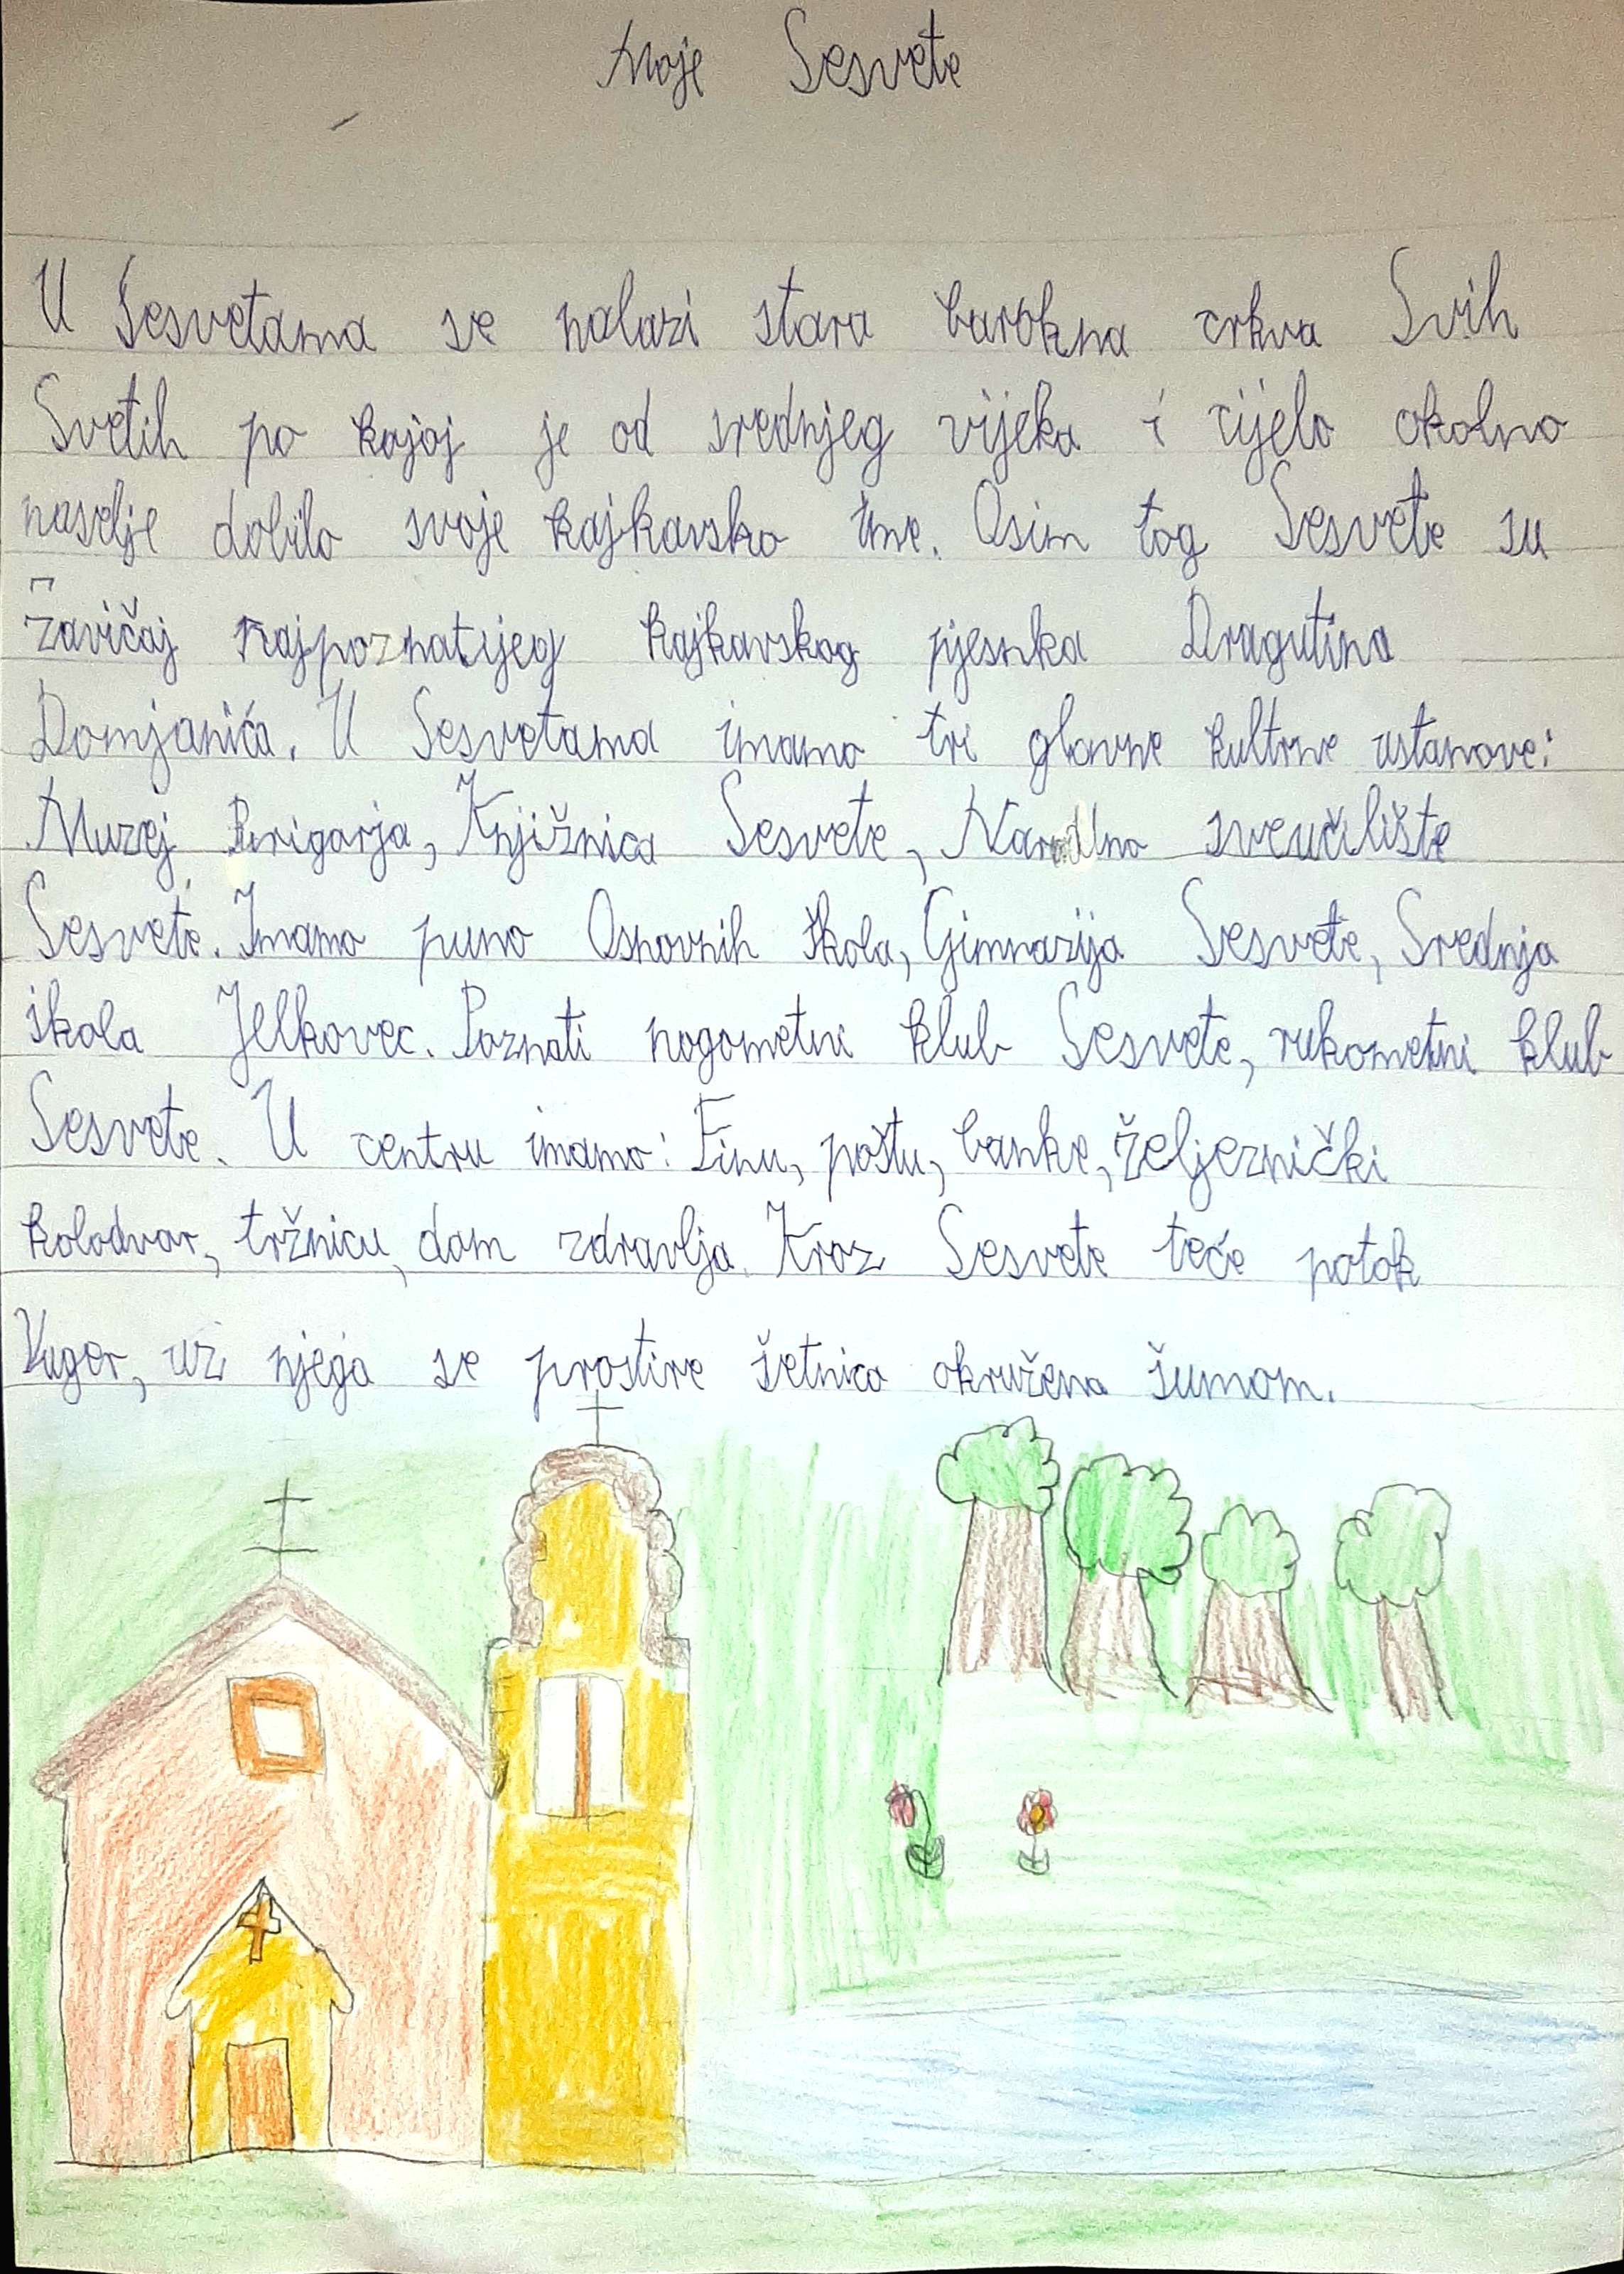 Moje Sesvete
U Sesvetama se nalazi stara barokna crkva Svih
Svetih po kojoj je od srednjeg vijeka i cijelo okolno
naselje dobilo svoje kajkavsko ime. Osim tog Sesvete su
zavičaj najpoznatijeg kajkavskog pjesnka Dragutina
Domjanića. U Sesvetama imamo tri glavne kultrne ustanove:
Muzej Prigorja, Knjižnica Sesvete, Narodno sveučilište
Sesvete. Imamo puno Osnovnih škola, Gimnazija Sesvete, Srednja
škola Jelkovec. Poznati nogometni klub Sesvete, rukometni klub
Sesvete. U centru imamo: Finu, poštu, banke, željeznički
kolodvor, tržnicu, dom zdravlja. Kroz Sesvete teče potok
Vuger, uz njega se prostire šetnica okružena šumom.